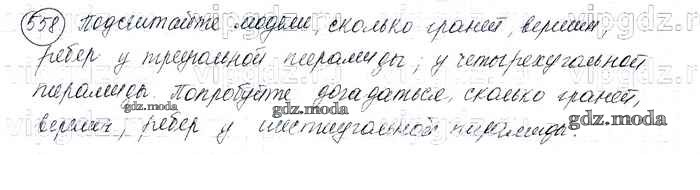 558 Подсчитайте модели, сколько граней, вершин,
ребер у треугольной пирамиды; у четырехугольной
пирамиды. Попробуйте догадаться, сколько граней,
вершин, ребер у шестиугольной пирамиды.
gdz.moda
gdz.moda
gdz.moda